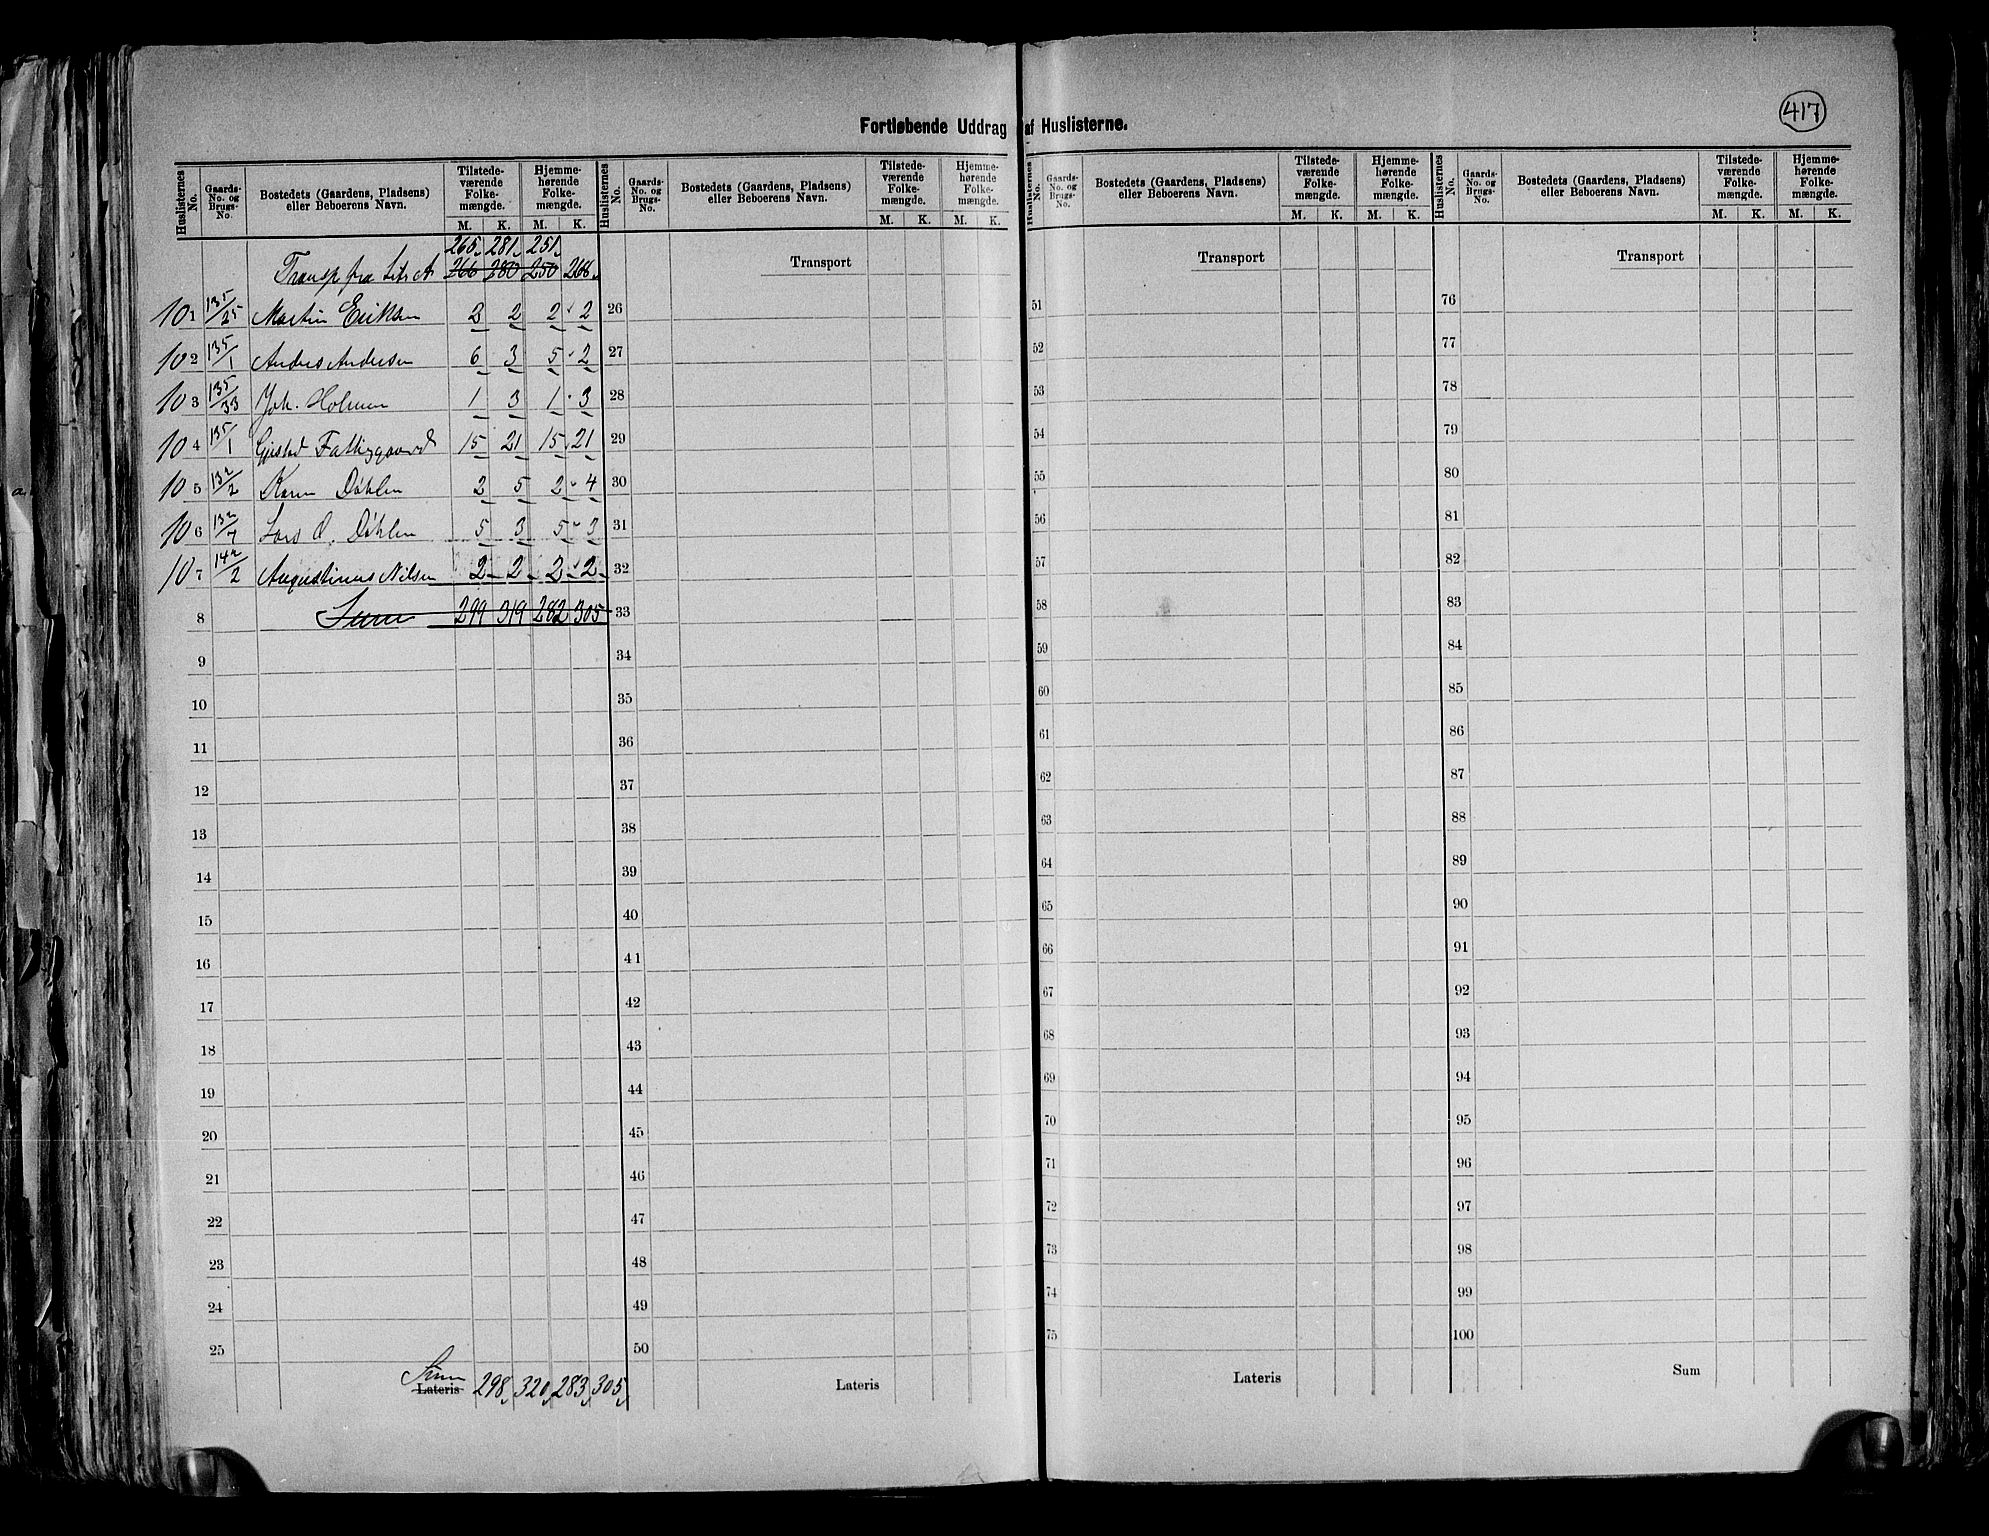 417
Fortløbende Uddrag af Huslisterne.
Huslisternes No. Gaards- No. og Brugs- No. Bostedets (Gaardens, Pladsens) eller Beboerens Navn. Tilstede- værende Folke- mængde. Hjemme- hørende Folke- mængde.
M. K. M. K.
265 281 251
Transp fra Litr A 266 280 250 268
101 135/25 Martin Eriksen 2 2 2 2
102 135/1 Andres Andersen 6 3 5 2
103 135/33 Joh. Holmen 1 3 1 3
104 135/1 Gjistad Fattiggaard 15 21 15 21
105 132/2 Karen Döhlen 2 5 2 4
106 132/7 Lars O. Döhlen 5 3 5 3
107 142/2 Augustinus Nilsen 2 2 2 2
8 Sum 299 319 282 305
9
10
11
12
13
14
15
16
17
18
19
20
21
22
23
24
25
Sum
Lateris 298 320 283 305
Huslisternes No. Gaards- No. og Brugs- No. Bostedets (Gaardens, Pladsens) eller Beboerens Navn. Tilstede- værende Folke- mængde. Hjemme- hørende Folke- mængde.
M. K. M. K.
Transport
26
27
28
29
30
31
32
33
34
35
36
37
38
39
40
41
42
43
44
45
46
47
48
49
50
Lateris
Huslisternes No. Gaards- No. og Brugs- No. Bostedets (Gaardens, Pladsens) eller Beboerens Navn. Tilstede- værende Folke- mængde. Hjemme- hørende Folke- mængde.
M. K. M. K.
Transport
51
52
53
54
55
56
57
58
59
60
61
62
63
64
65
66
67
68
69
70
71
72
73
74
75
Lateris
Huslisternes No. Gaards- No. og Brugs- No. Bostedets (Gaardens, Pladsens) eller Beboerens Navn. Tilstede- værende Folke- mængde. Hjemme- hørende Folke- mængde.
M. K. M. K.
Transport
76
77
78
79
80
81
82
83
84
85
86
87
88
89
90
91
92
93
94
95
96
97
98
99
100
Sum